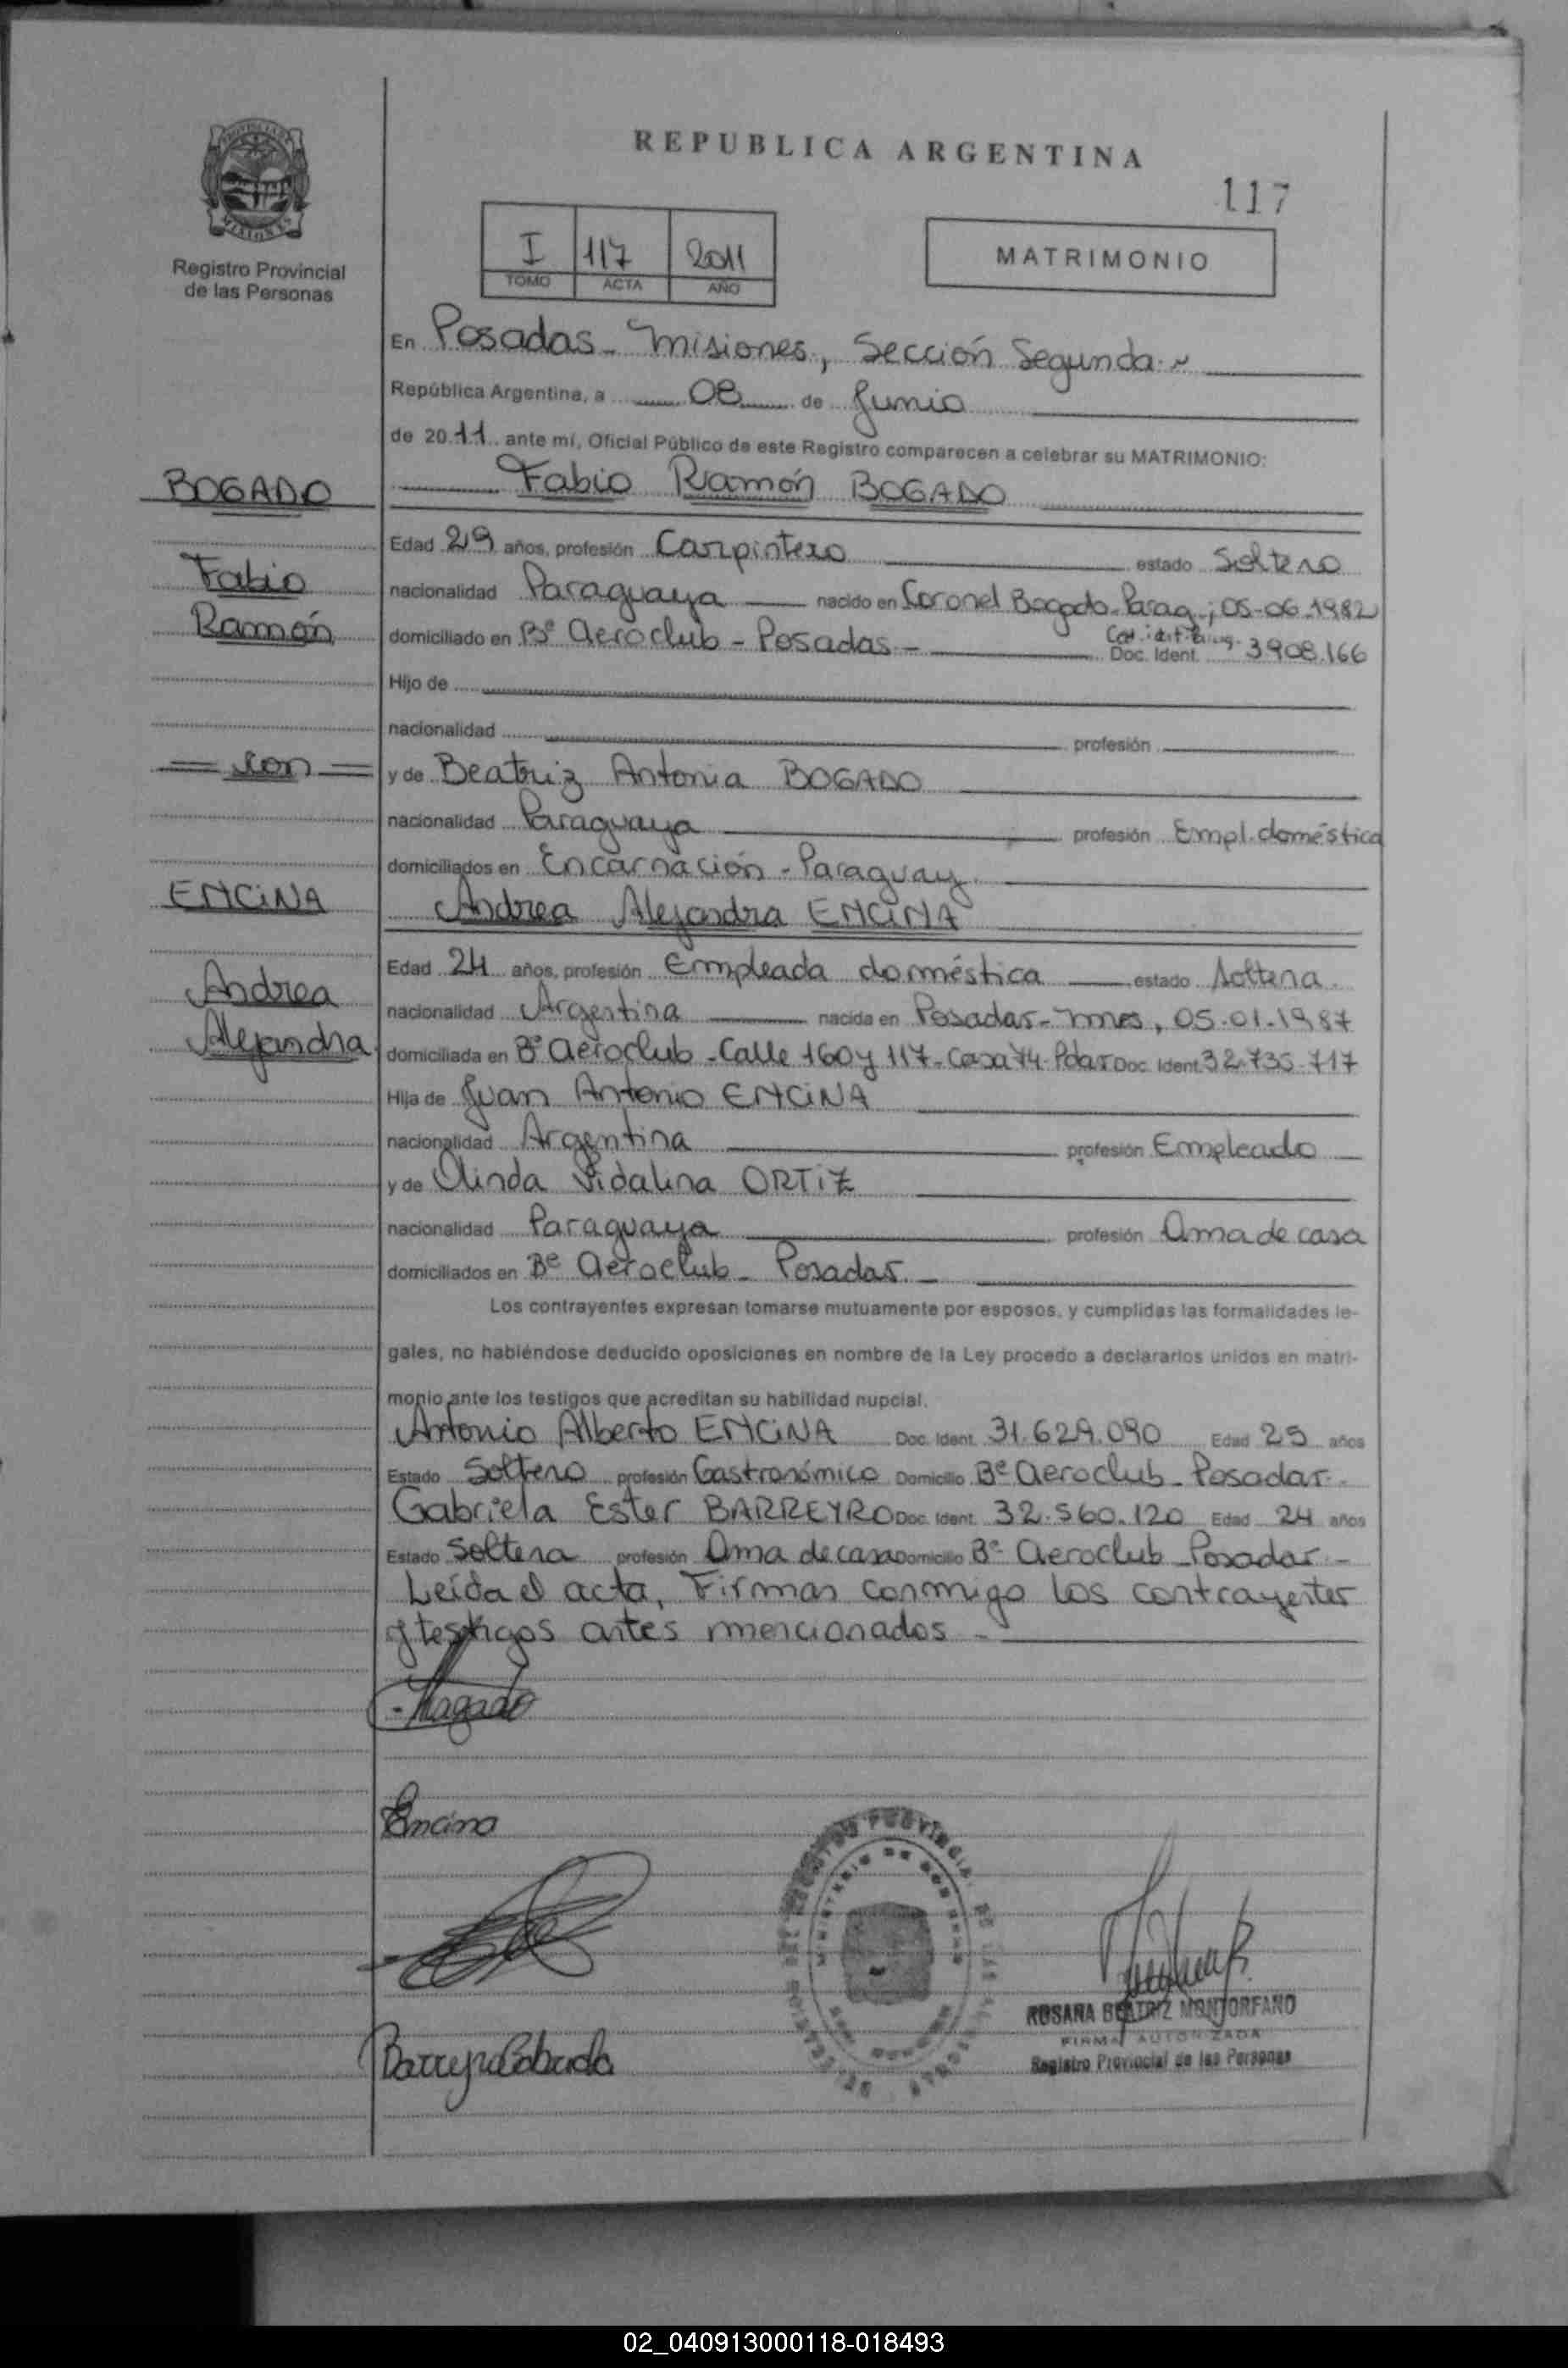 REPUBLICA ARGENTINA
117
Registro Provincial
de las Personas
I 117 2011
TOMO ACTA AÑO
MATRIMONIO
En Posadas - Misiones, Sección Segunda.~
República Argentina, a 08 de Junio
de 2011 ante mí, Oficial Público de este Registro comparecen a celebrar su MATRIMONIO:
BOGADO
Fabio
Ramón
= con =
ENCINA
Andrea
Alejandra
Fabio Ramón BOGADO
Edad 29 años, profesión Carpintero estado Soltero
nacionalidad Paraguaya nacido en Coronel Bogado-Parag.; 05-06-1982
domiciliado en Bº Aeroclub - Posadas - Doc. Ident. 3908.166
Hijo de
nacionalidad profesión
y de Beatriz Antonia BOGADO
nacionalidad Paraguaya profesión Empl. doméstica
domiciliados en Encarnación - Paraguay.
Andrea Alejandra ENCINA
Edad 24 años, profesión Empleada doméstica estado Soltera.
nacionalidad Argentina nacida en Posadas - Mnes, 05-01-1987
domiciliada en Bº Aeroclub - Calle 160 y 117 - Casa 74 - Pdas Doc. Ident. 32.735.717
Hija de Juan Antonio ENCINA
nacionalidad Argentina profesión Empleado
y de Olinda Vidalina ORTIZ
nacionalidad Paraguaya profesión Ama de casa
domiciliados en Bº Aeroclub - Posadas. -
Los contrayentes expresan tomarse mutuamente por esposos, y cumplidas las formalidades le-
gales, no habiéndose deducido oposiciones en nombre de la Ley procedo a declararlos unidos en matri-
monio ante los testigos que acreditan su habilidad nupcial.
Antonio Alberto ENCINA Doc. Ident. 31.629.090 Edad 25 años
Estado Soltero profesión Gastronómico Domicilio Bº Aeroclub - Posadas.-
Gabriela Ester BARREYRO Doc. Ident. 32.560.120 Edad 24 años
Estado Soltera profesión Ama de casa Domicilio Bº Aeroclub - Posadas.-
Leída el acta, Firman conmigo los contrayentes
y testigos antes mencionados -
Encina
ROSANA BEATRIZ MONTORFANO
FIRMA AUTORIZADA
Registro Provincial de las Personas
02_040913000118-018493